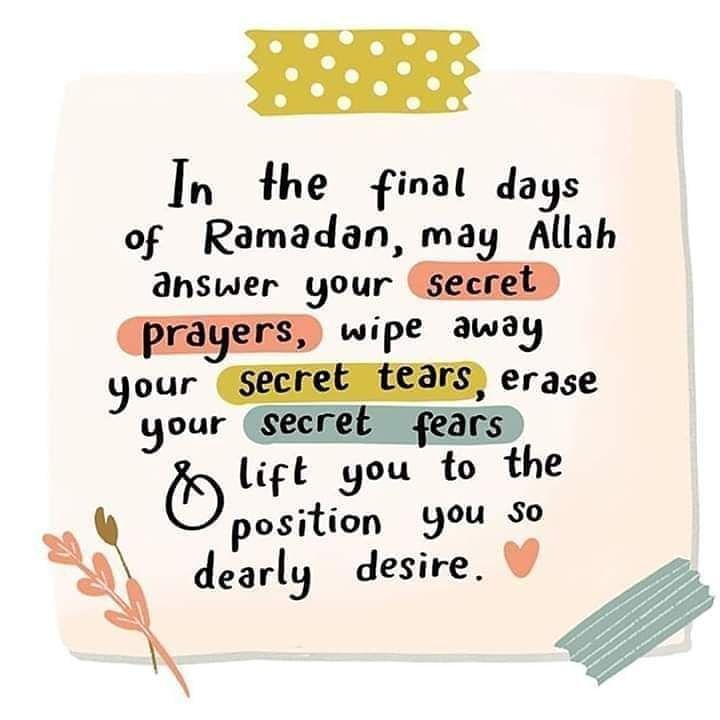 In the final days
of Ramadan, may Allah
answer your secret
prayers, wipe away
your secret tears, erase
your secret fears
& lift you to the
position you so
dearly desire.